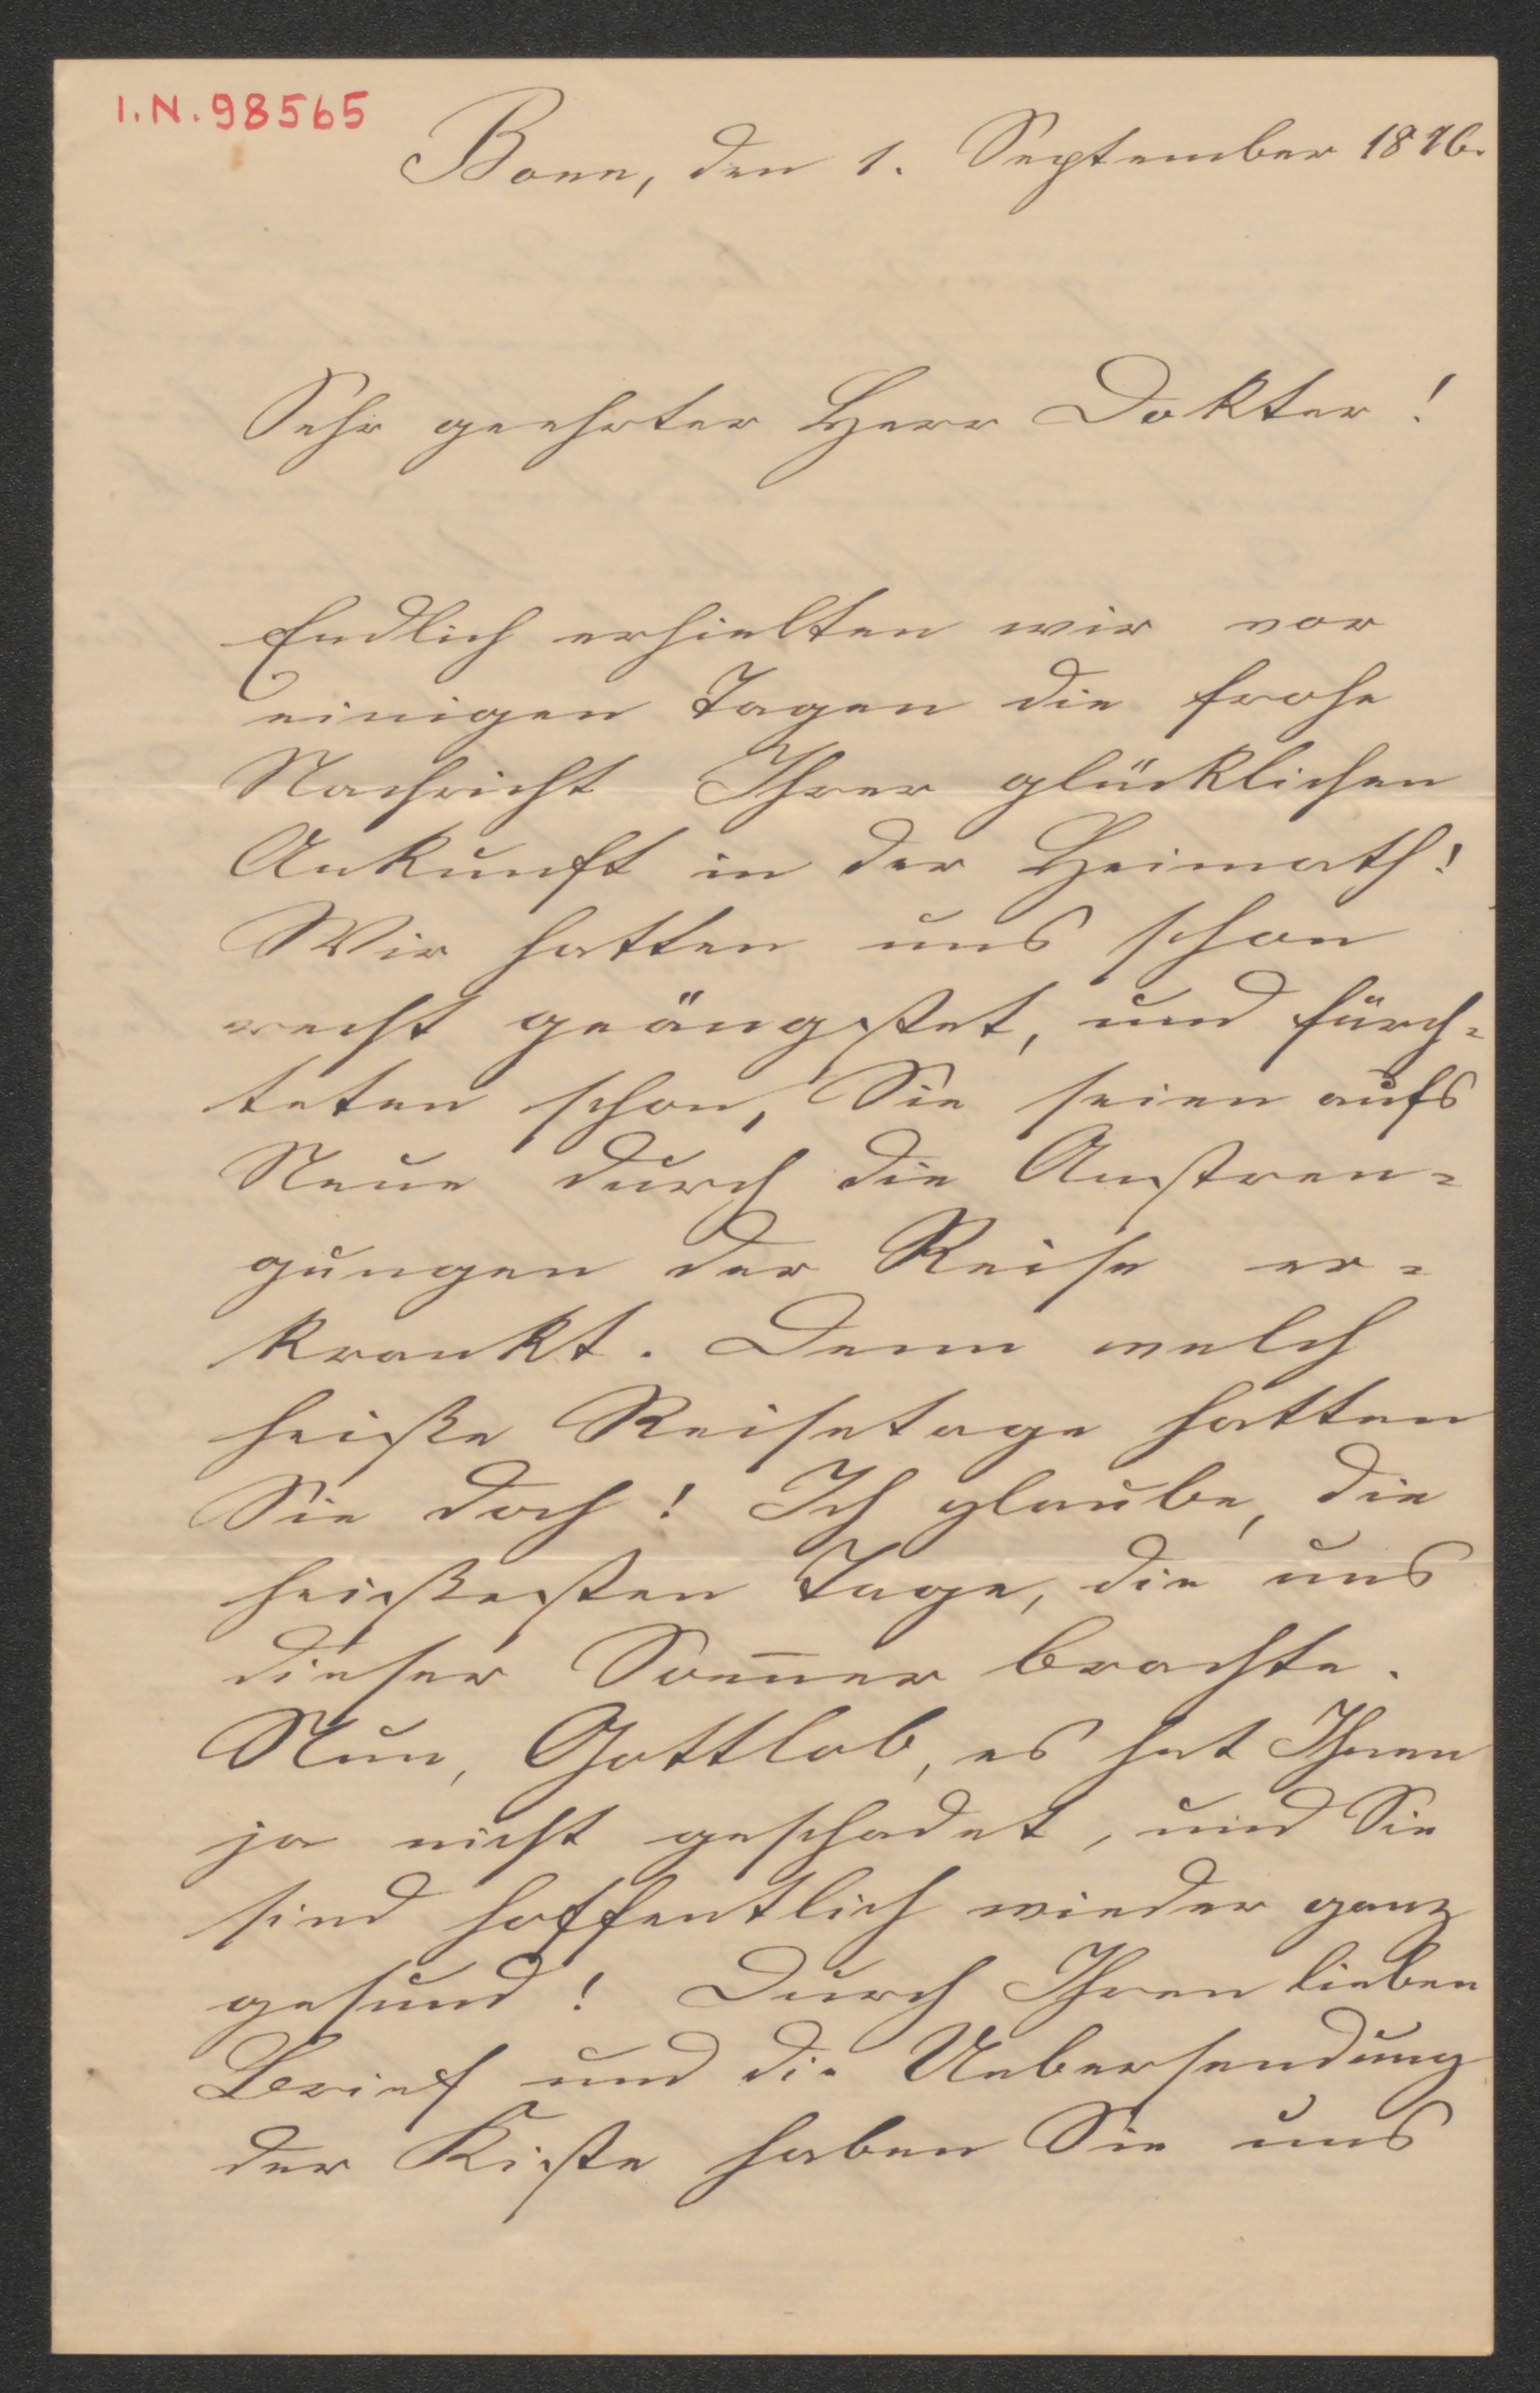 I.N. 98565
Bonn, den 1. September 1876.
Sehr geehrter Herr Dokter!
Endlich erhielten wir vor
einigen Tagen die frohe
Nachricht Ihrer glücklichen
Ankunft in der Heimath!
Wir hatten uns schon
recht geängstet, und fürch-
teten schon, Sie seien aufs
Neue durch die Anstren-
gungen der Reise er-
krankt. Denn welch
heiße Reisetage hatten
Sie doch! Ich glaube, die
heißesten Tage, die uns
dieser Som̅er brachte.
Nun, Gottlob, es hat Ihnen
ja nicht geschadet, und Sie
sind hoffentlich wieder ganz
gesund! Durch Ihren lieben
Brief und die Uebersendung
der Kiste haben Sie uns